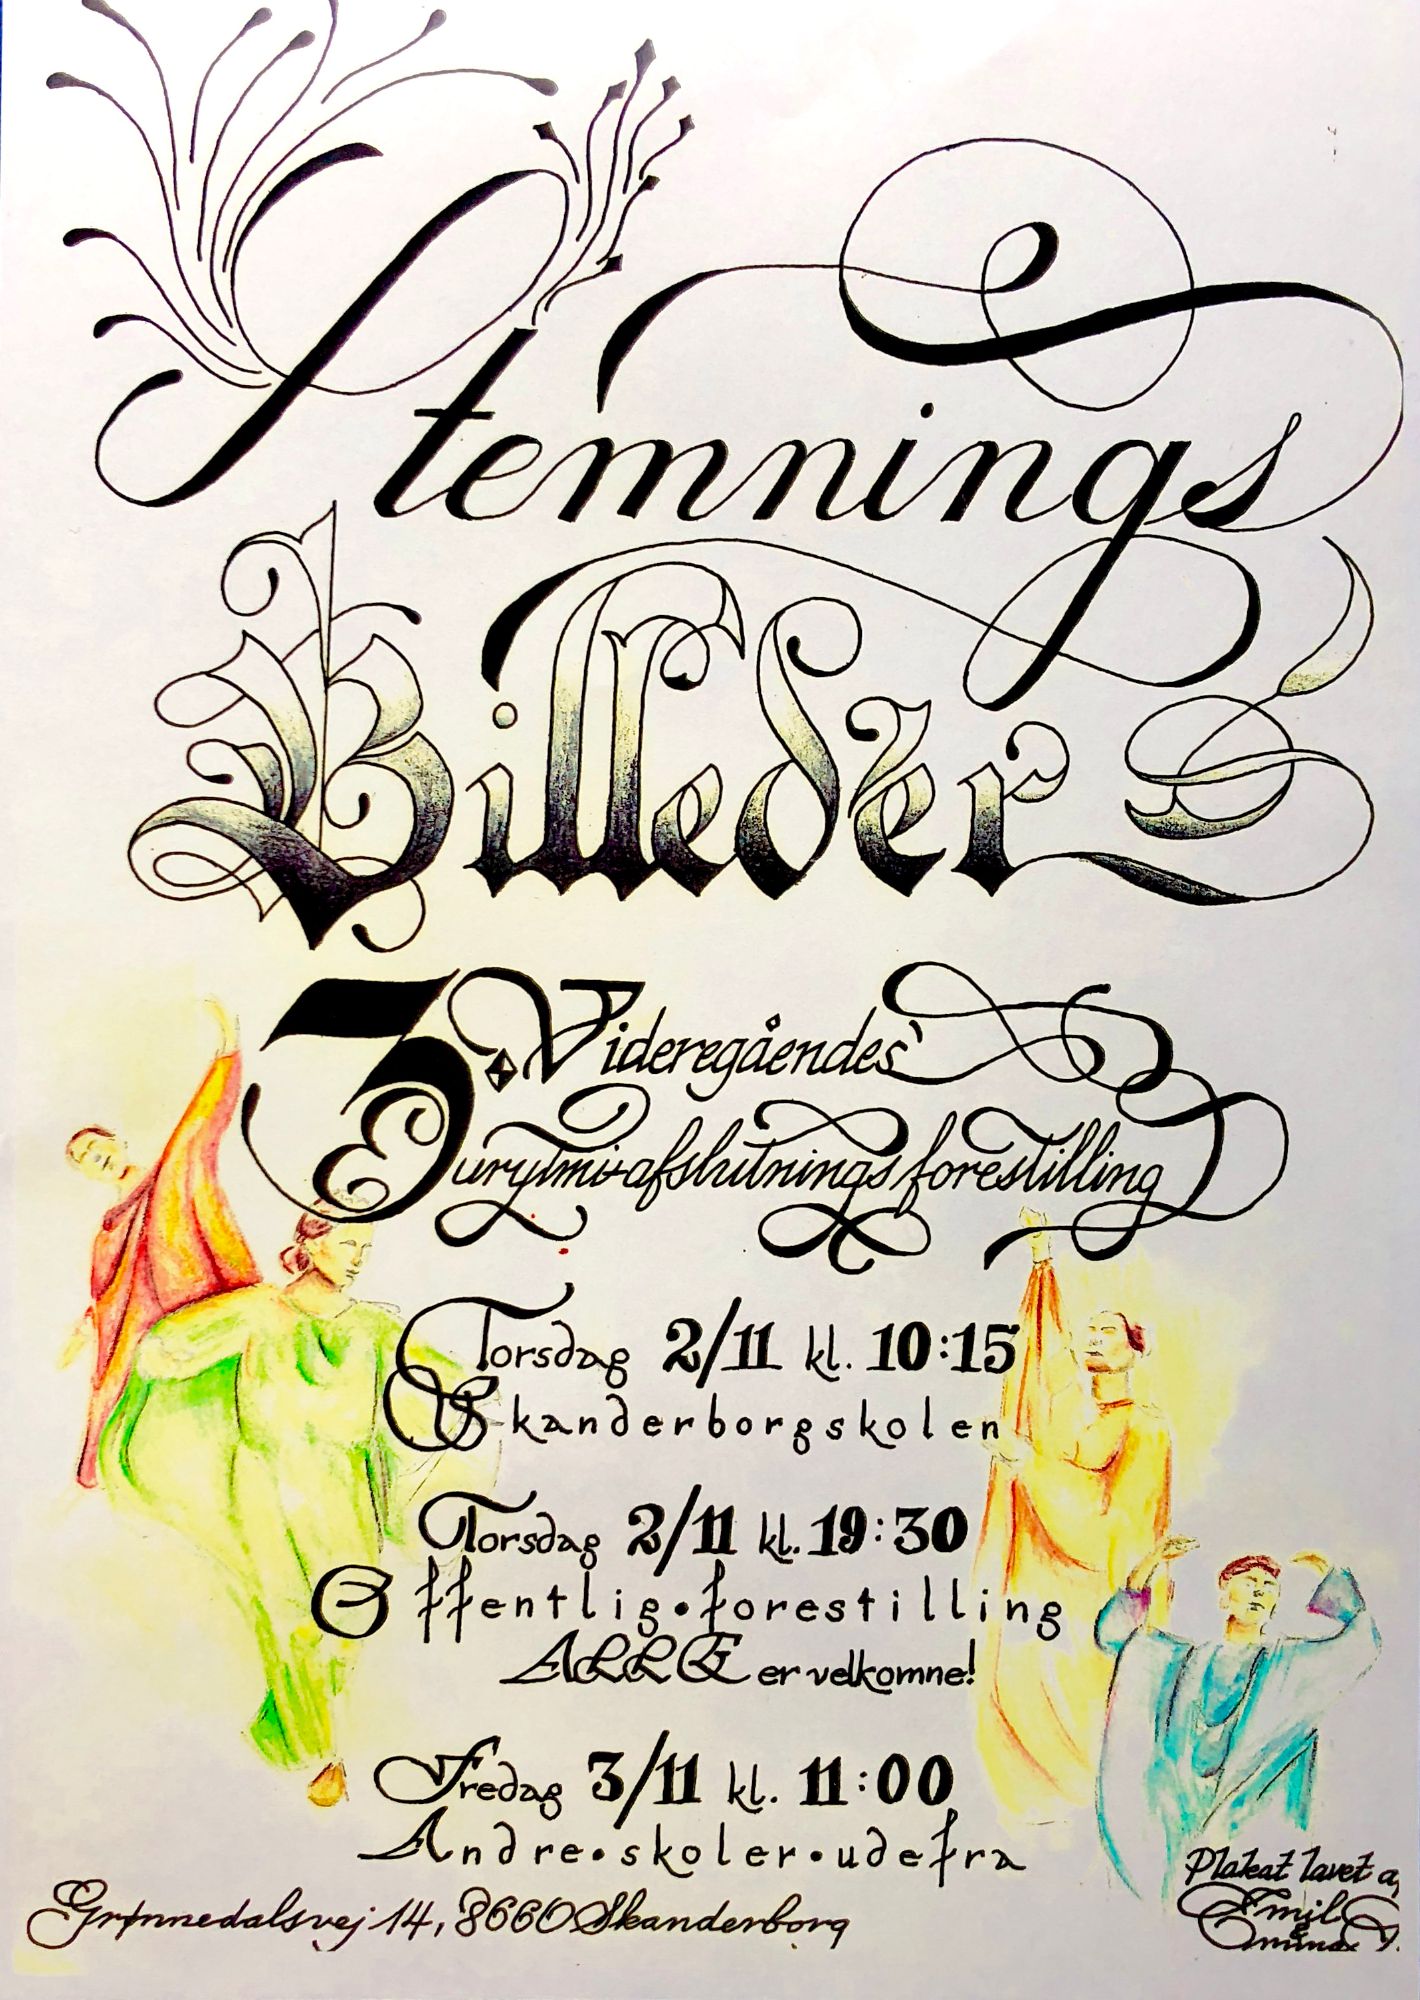 Stemnings
Billeder
3. Videregåendes'
Eurytmi-afslutningsforestilling
Torsdag 2/11 kl. 10:15
Skanderborgskolen
Torsdag 2/11 kl. 19:30
Offentlig•forestilling
ALLE er velkomne!
Fredag 3/11 kl. 11:00
Andre•skoler•udefra
Grønnedalsvej 14, 8660 Skanderborg
Plakat lavet a
Emil
&